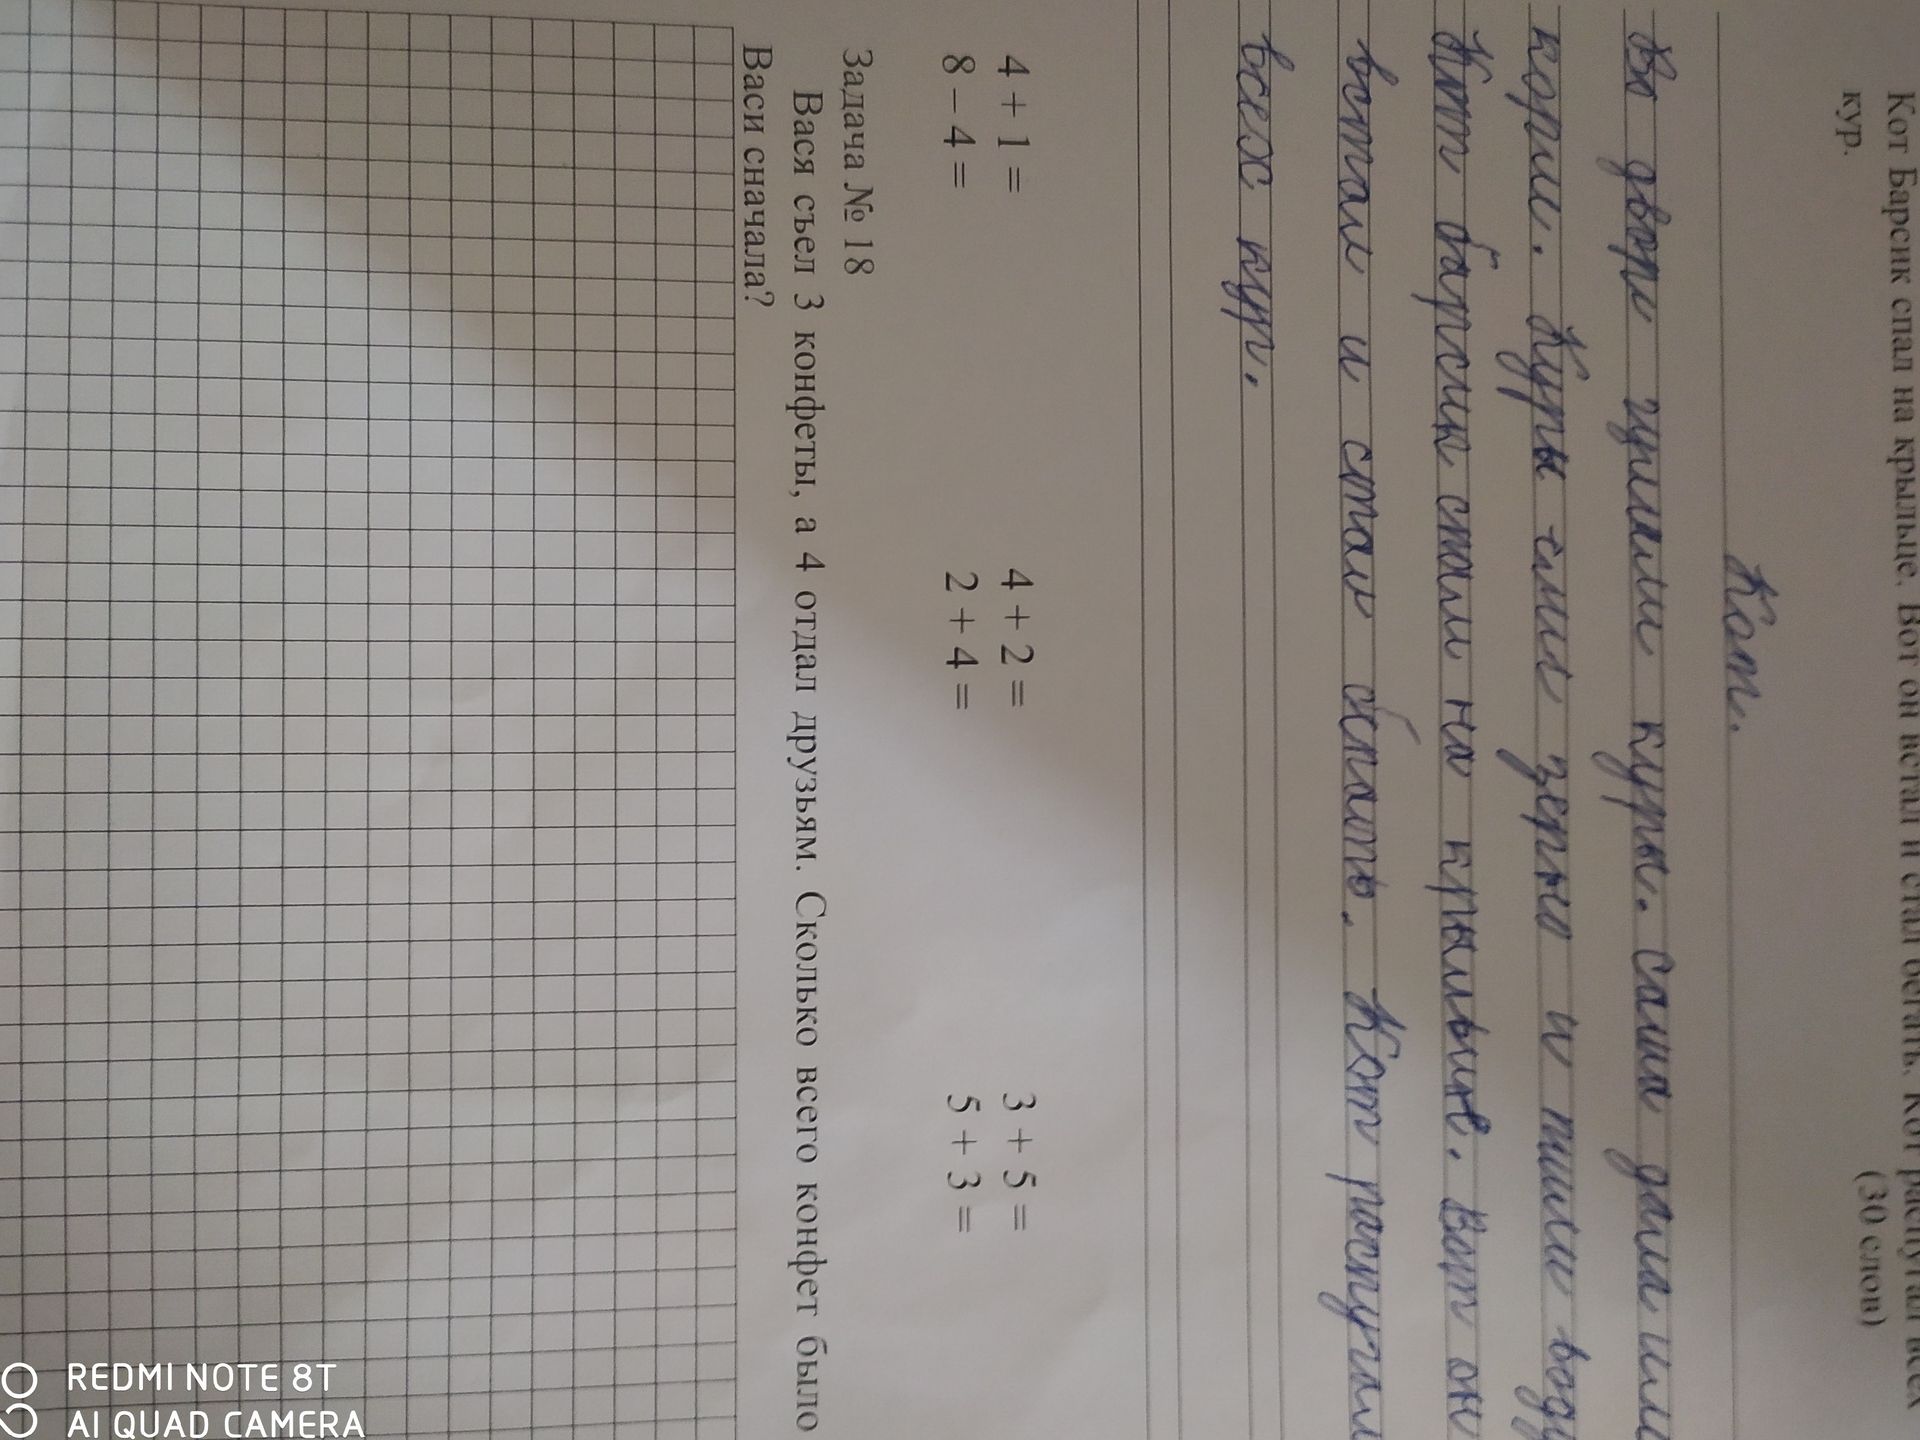 Кот Барсик спал на крыльце. Вот он встал и стал бегать. Кот распугал всех
кур.
(30 слов)
Кот.
Во дворе гуляли куры. Саша дала им
корм. Куры ели зерно и пили воду
Кот барсик спал на крыльце. Вот он
встал и стал бегать. Кот распугал
всех кур.
4 + 1 = 4 + 2 = 3 + 5 =
8 – 4 = 2 + 4 = 5 + 3 =
Задача № 18
Вася съел 3 конфеты, а 4 отдал друзьям. Сколько всего конфет было
Васи сначала?
REDMI NOTE 8T
AI QUAD CAMERA